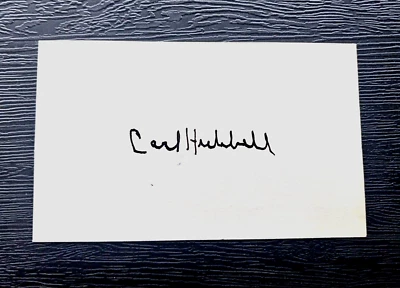 Carl Hubbell